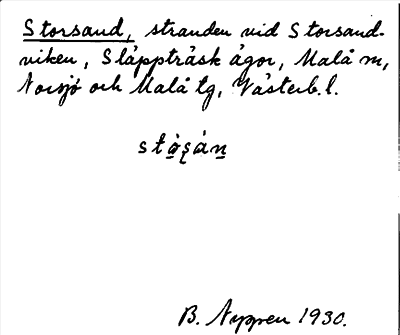 Storsand, stranden vid Storsand-
viken, Släppträsk ägor, Malå m,
Norsjö och Malå tg, Västerb. l.
stò̤ʂán̲
B. Nyppen 1930.